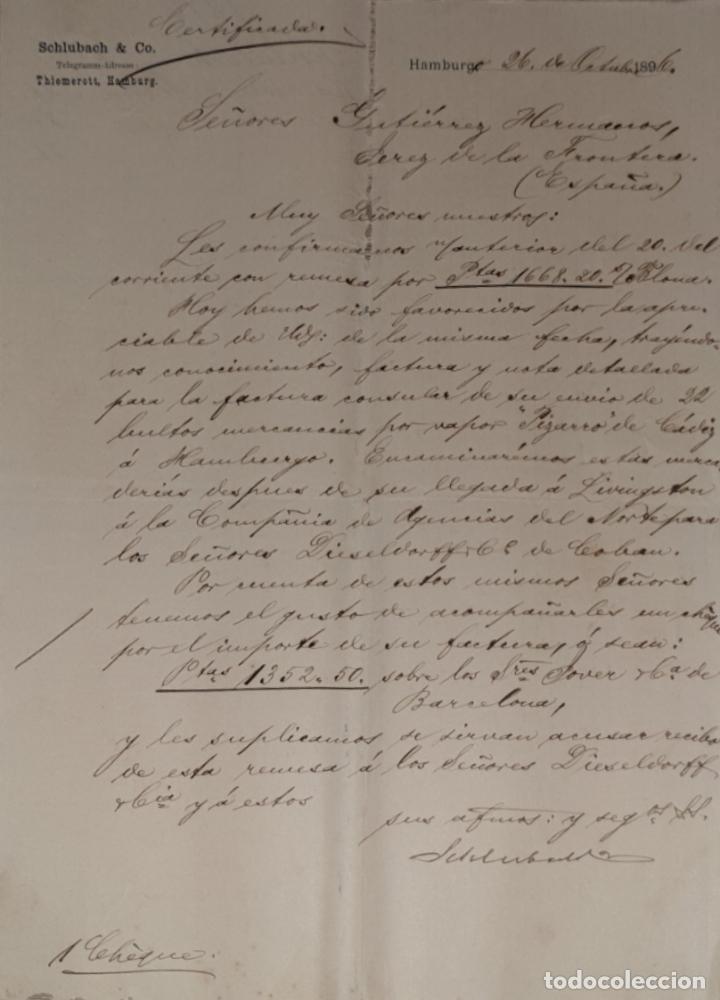 Certificada.
Schlubach & Co.
Telegramm-Adresse:
Thiemerott, Hamburg.
Hamburgo 26. de Octubre 1896.
Señores Gutiérrez Hermanos,
Jerez de la Frontera.
(España.)
Muy Señores nuestros:
Les confirmamos n/ anterior del 20. del
corriente con remesa por Ptas 1668.20.
Hoy hemos sido favorecidos por la apre-
ciable de Uds: de la misma fecha, trayéndo-
nos conocimiento, factura y nota detallada
para la factura consular de su envio de 22
bultos mercancias por vapor "Pizarro" de Cádiz
á Hamburgo. Encaminarémos estas merca-
derías despues de su llegada á Livingston
á la Compañia de Agencias del Norte para
los Señores Dieseldorff & Co de Coban.
Por cuenta de estos mismos Señores
tenemos el gusto de acompañarles un chèque
por el importe de su factura, ó sean:
Ptas 1352.50. sobre los Sres Jover & Ca de
Barcelona,
y les suplicamos se sirvan acusar recibo
de esta remesa á los Señores Dieseldorff
& Cia y á estos
sus afmos: y segos SS.
Schlubach
1 Chèque.
todocoleccion.net